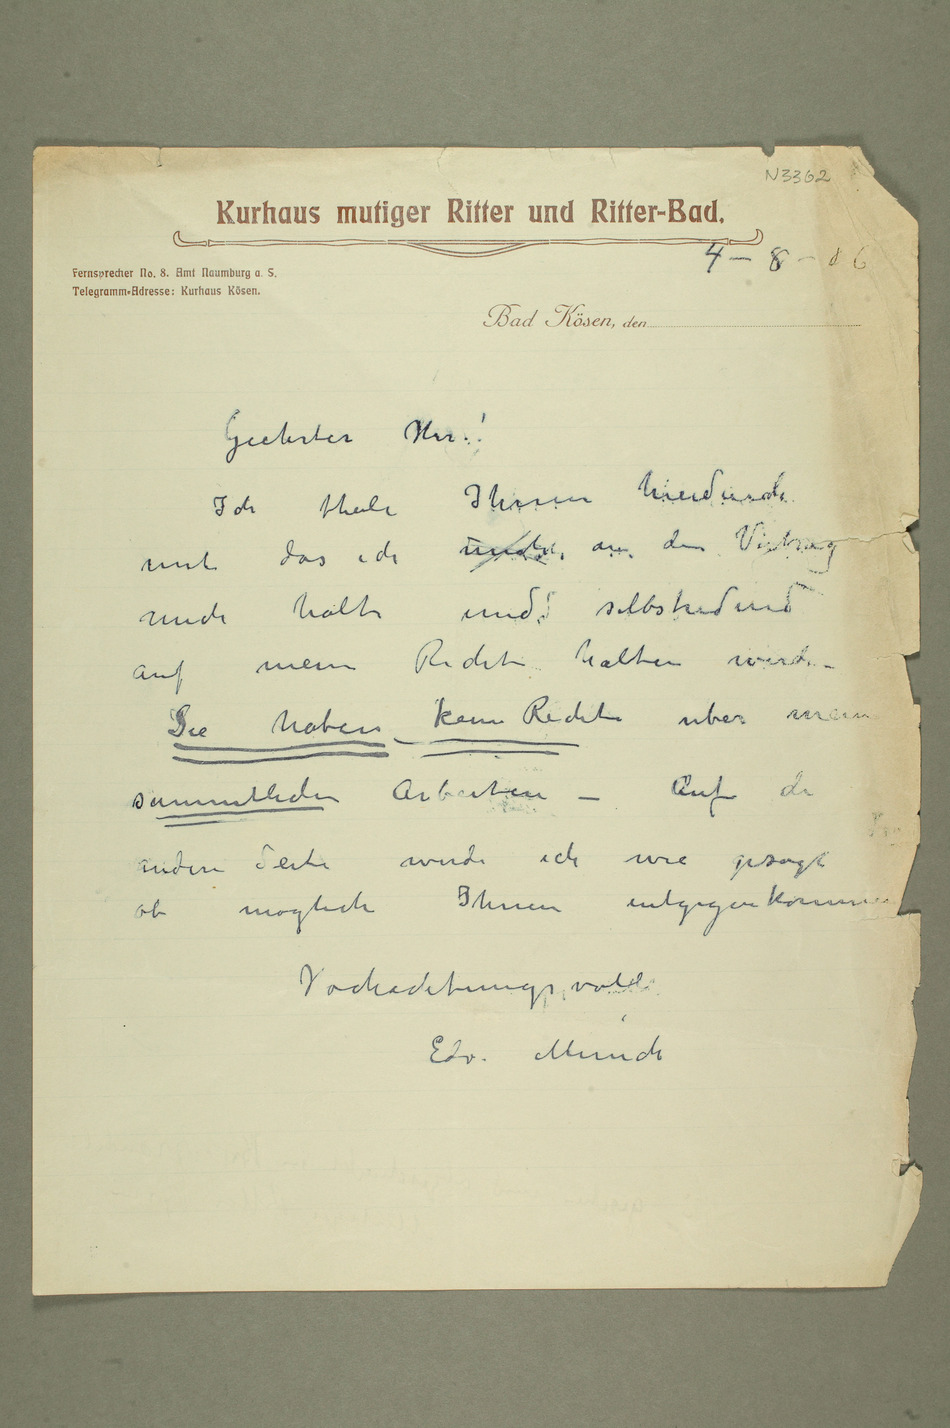 N3362
Kurhaus mutiger Ritter und Ritter-Bad.
4 – 8 – 06
Fernsprecher No. 8. Amt Naumburg a. S.
Telegramm-Adresse: Kurhaus Kösen.
Bad Kösen, den
Geehrter Herr!
Ich theile Ihnen hierdurch
mit das ich an den Vertrag
mich halte und selbstredend
auf mein Recht halten werde –
Sie haben kein Recht uber mein
sammtlichen Arbeiten – Auf die
andere Seite werde ich wie gesagt
ob moglich Ihnen entgegenkommen
Vochachtungsvoll
Edv. Munch